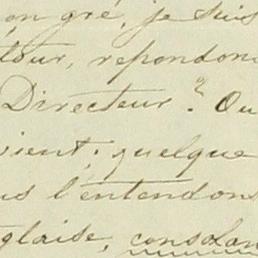 on gré, je suis
tour, repondon
Directeur? Ou
vient; quelque
us l'entendons
glaise, consolan